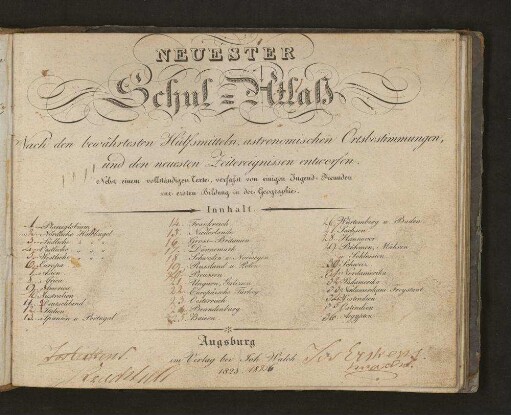 NEUESTER
Schul=Atlaß
Nach den bewährtesten Hülfsmitteln, astronomischen Ortsbestimmungen,
und den neuesten Zeitereignissen entworfen.
Nebst einem vollständigen Texte, verfasst von einigen Jugend-Freunden
zur ersten Bildung in der Geographie.
Innhalt.
1. Planiglobium
2. Nördliche Halbkugel
3. Südliche
4. Oestliche
5. Westliche
6. Europa
7. Asien
8. Africa
9. America
Australien
Deutschland
Italien
13. Spanien u. Portugal
14. Frankreich
15. Niederlande
16. Gross-Britanien
17. Daennemark
18. Schweden u. Norwegen
19. Russland u. Polen
20. Preussen
21. Ungarn,
22. Europäische Türkey
23. Oestreich
24. Brandenburg
25. Baiern
26. Würtemberg u. Baden
27. Sachsen
28. Hannover
29. Böhmen, Mähren
u. Schlesien
30. Schweiz
Nordamerika
Südamerika
Ostindien
36. Aegypten
Augsburg
im Verlag bey Joh. Walch
1823 1826